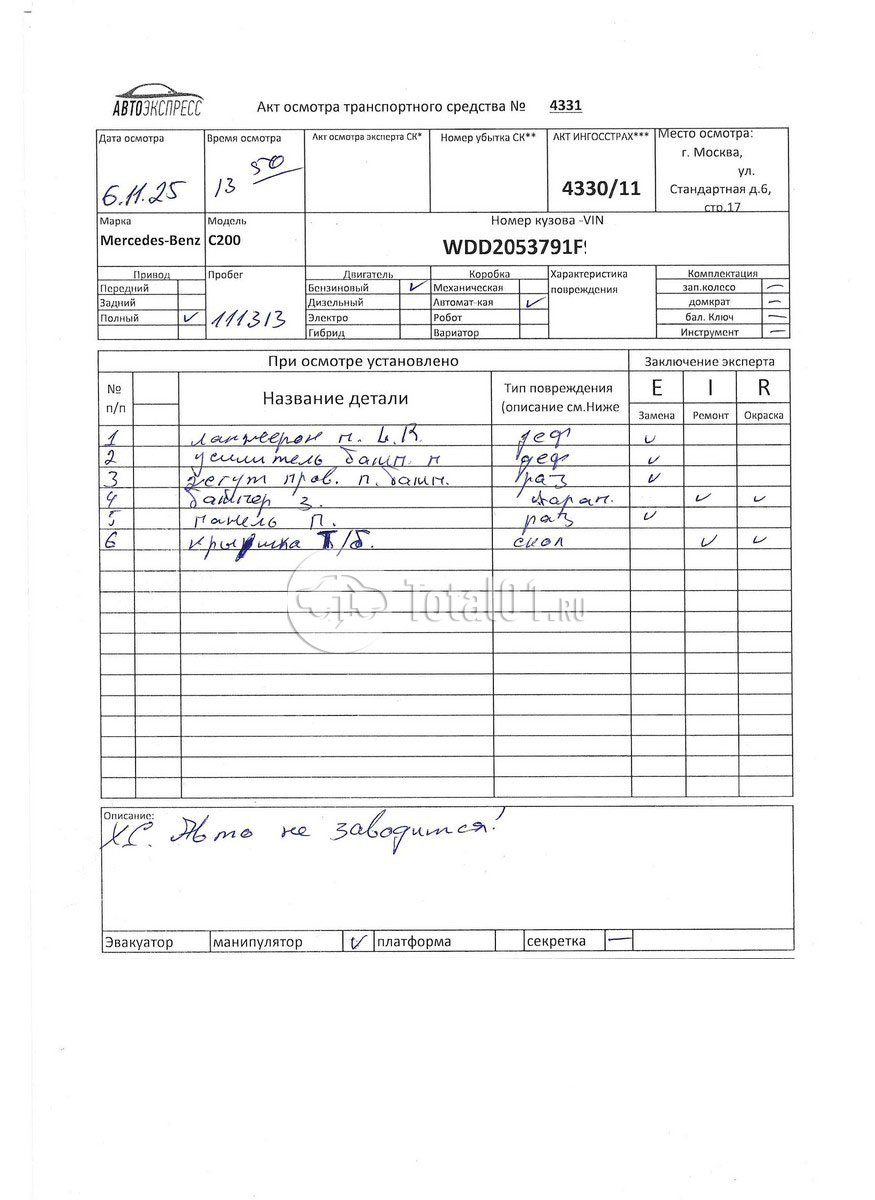 АВТОЭКСПРЕСС
Акт осмотра транспортного средства № 4331
Дата осмотра
6.11.25
Время осмотра
13 50
Акт осмотра эксперта СК*
Номер убытка СК**
АКТ ИНГОССТРАХ***
4330/11
Место осмотра:
г. Москва,
ул.
Стандартная д.6,
стр.17
Марка
Mercedes-Benz
Модель
C200
Номер кузова -VIN
WDD2053791F
Привод
Передний
Задний
Полный ✓
Пробег
111313
Двигатель
Бензиновый ✓
Дизельный
Электро
Гибрид
Коробка
Механическая
Автомат-кая ✓
Робот
Вариатор
Характеристика
повреждения
Комплектация
зап.колесо —
домкрат —
бал. Ключ —
Инструмент —
При осмотре установлено
Заключение эксперта
№
п/п
Название детали
Тип повреждения
(описание см.Ниже
E I R
Замена Ремонт Окраска
1 лонжерон п. L.R. деф ✓
2 усилитель бамп. п деф ✓
3 жгут пров. п. бамп. раз ✓
4 бампер з. царап. ✓ ✓
5 панель п. раз ✓
6 крышка т/б. скол ✓ ✓
Total01.RU
Описание:
ХС. Авто не заводится!
Эвакуатор манипулятор ✓ платформа секретка —